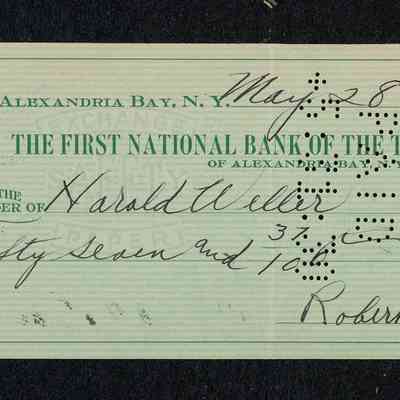 ALEXANDRIA BAY, N. Y. May 28
THE FIRST NATIONAL BANK OF THE T
OF ALEXANDRIA BAY, N.Y.
THE
ER OF Harold Weller
fty seven and 37/100
Rober